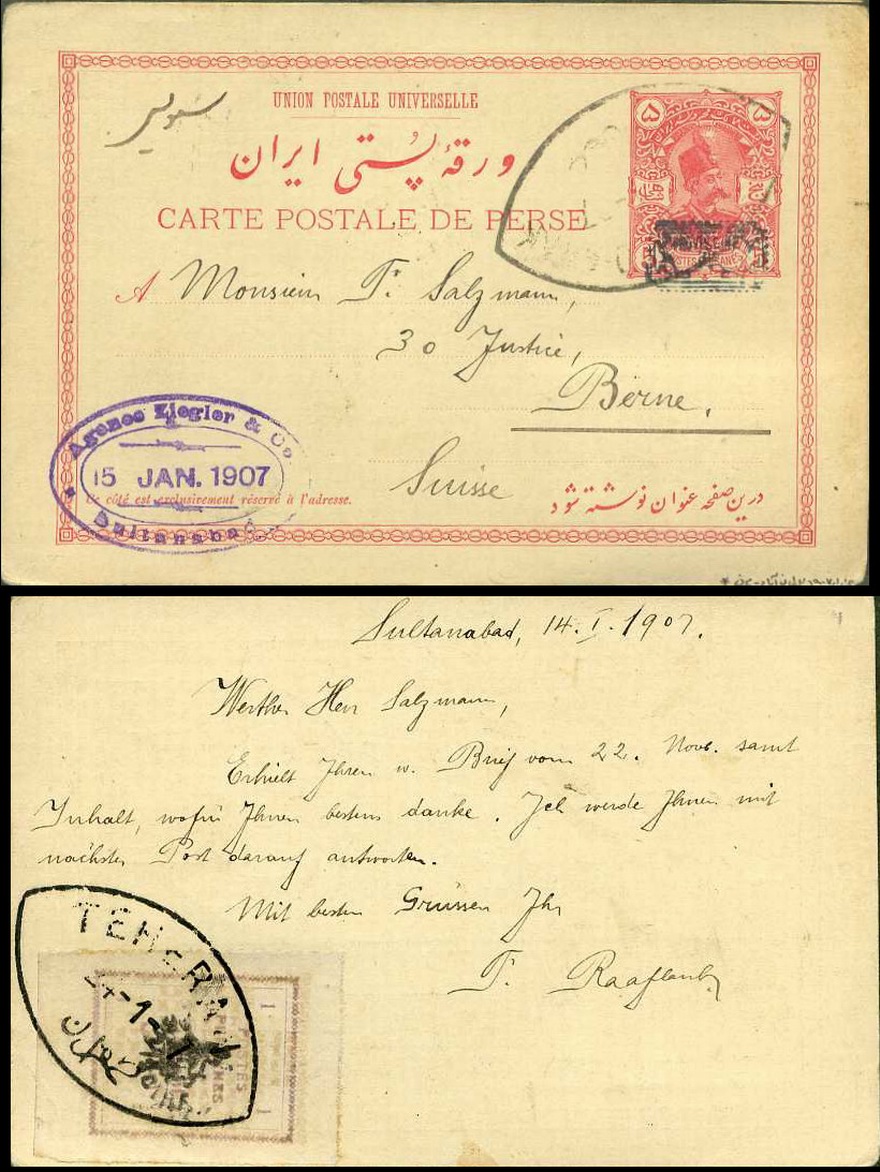 سویس
UNION POSTALE UNIVERSELLE
ورقهٔ پُستی ایران
CARTE POSTALE DE PERSE
۵ ۵
PROVISOIRE
A Monsieur F. Salzmann,
30 Justice,
Berne.
Suisse
Agence Ziegler & Co
15 JAN. 1907
Sultanabad
Ce côté est exclusivement réservé à l'adresse.
درین صفحه عنوان نوشته شود
Sultanabad, 14. I. 1907.
Werther Herr Salzmann,
Erhielt Ihren w. Brief vom 22. Nov. samt
Inhalt, wofür Ihnen bestens danke. Ich werde Ihnen mit
nächster Post darauf antworten.
Mit besten Grüssen Ihr
F. Raaflaub
TEHERAN
24-1-
طهران
1 1
POSTES
PERSANES